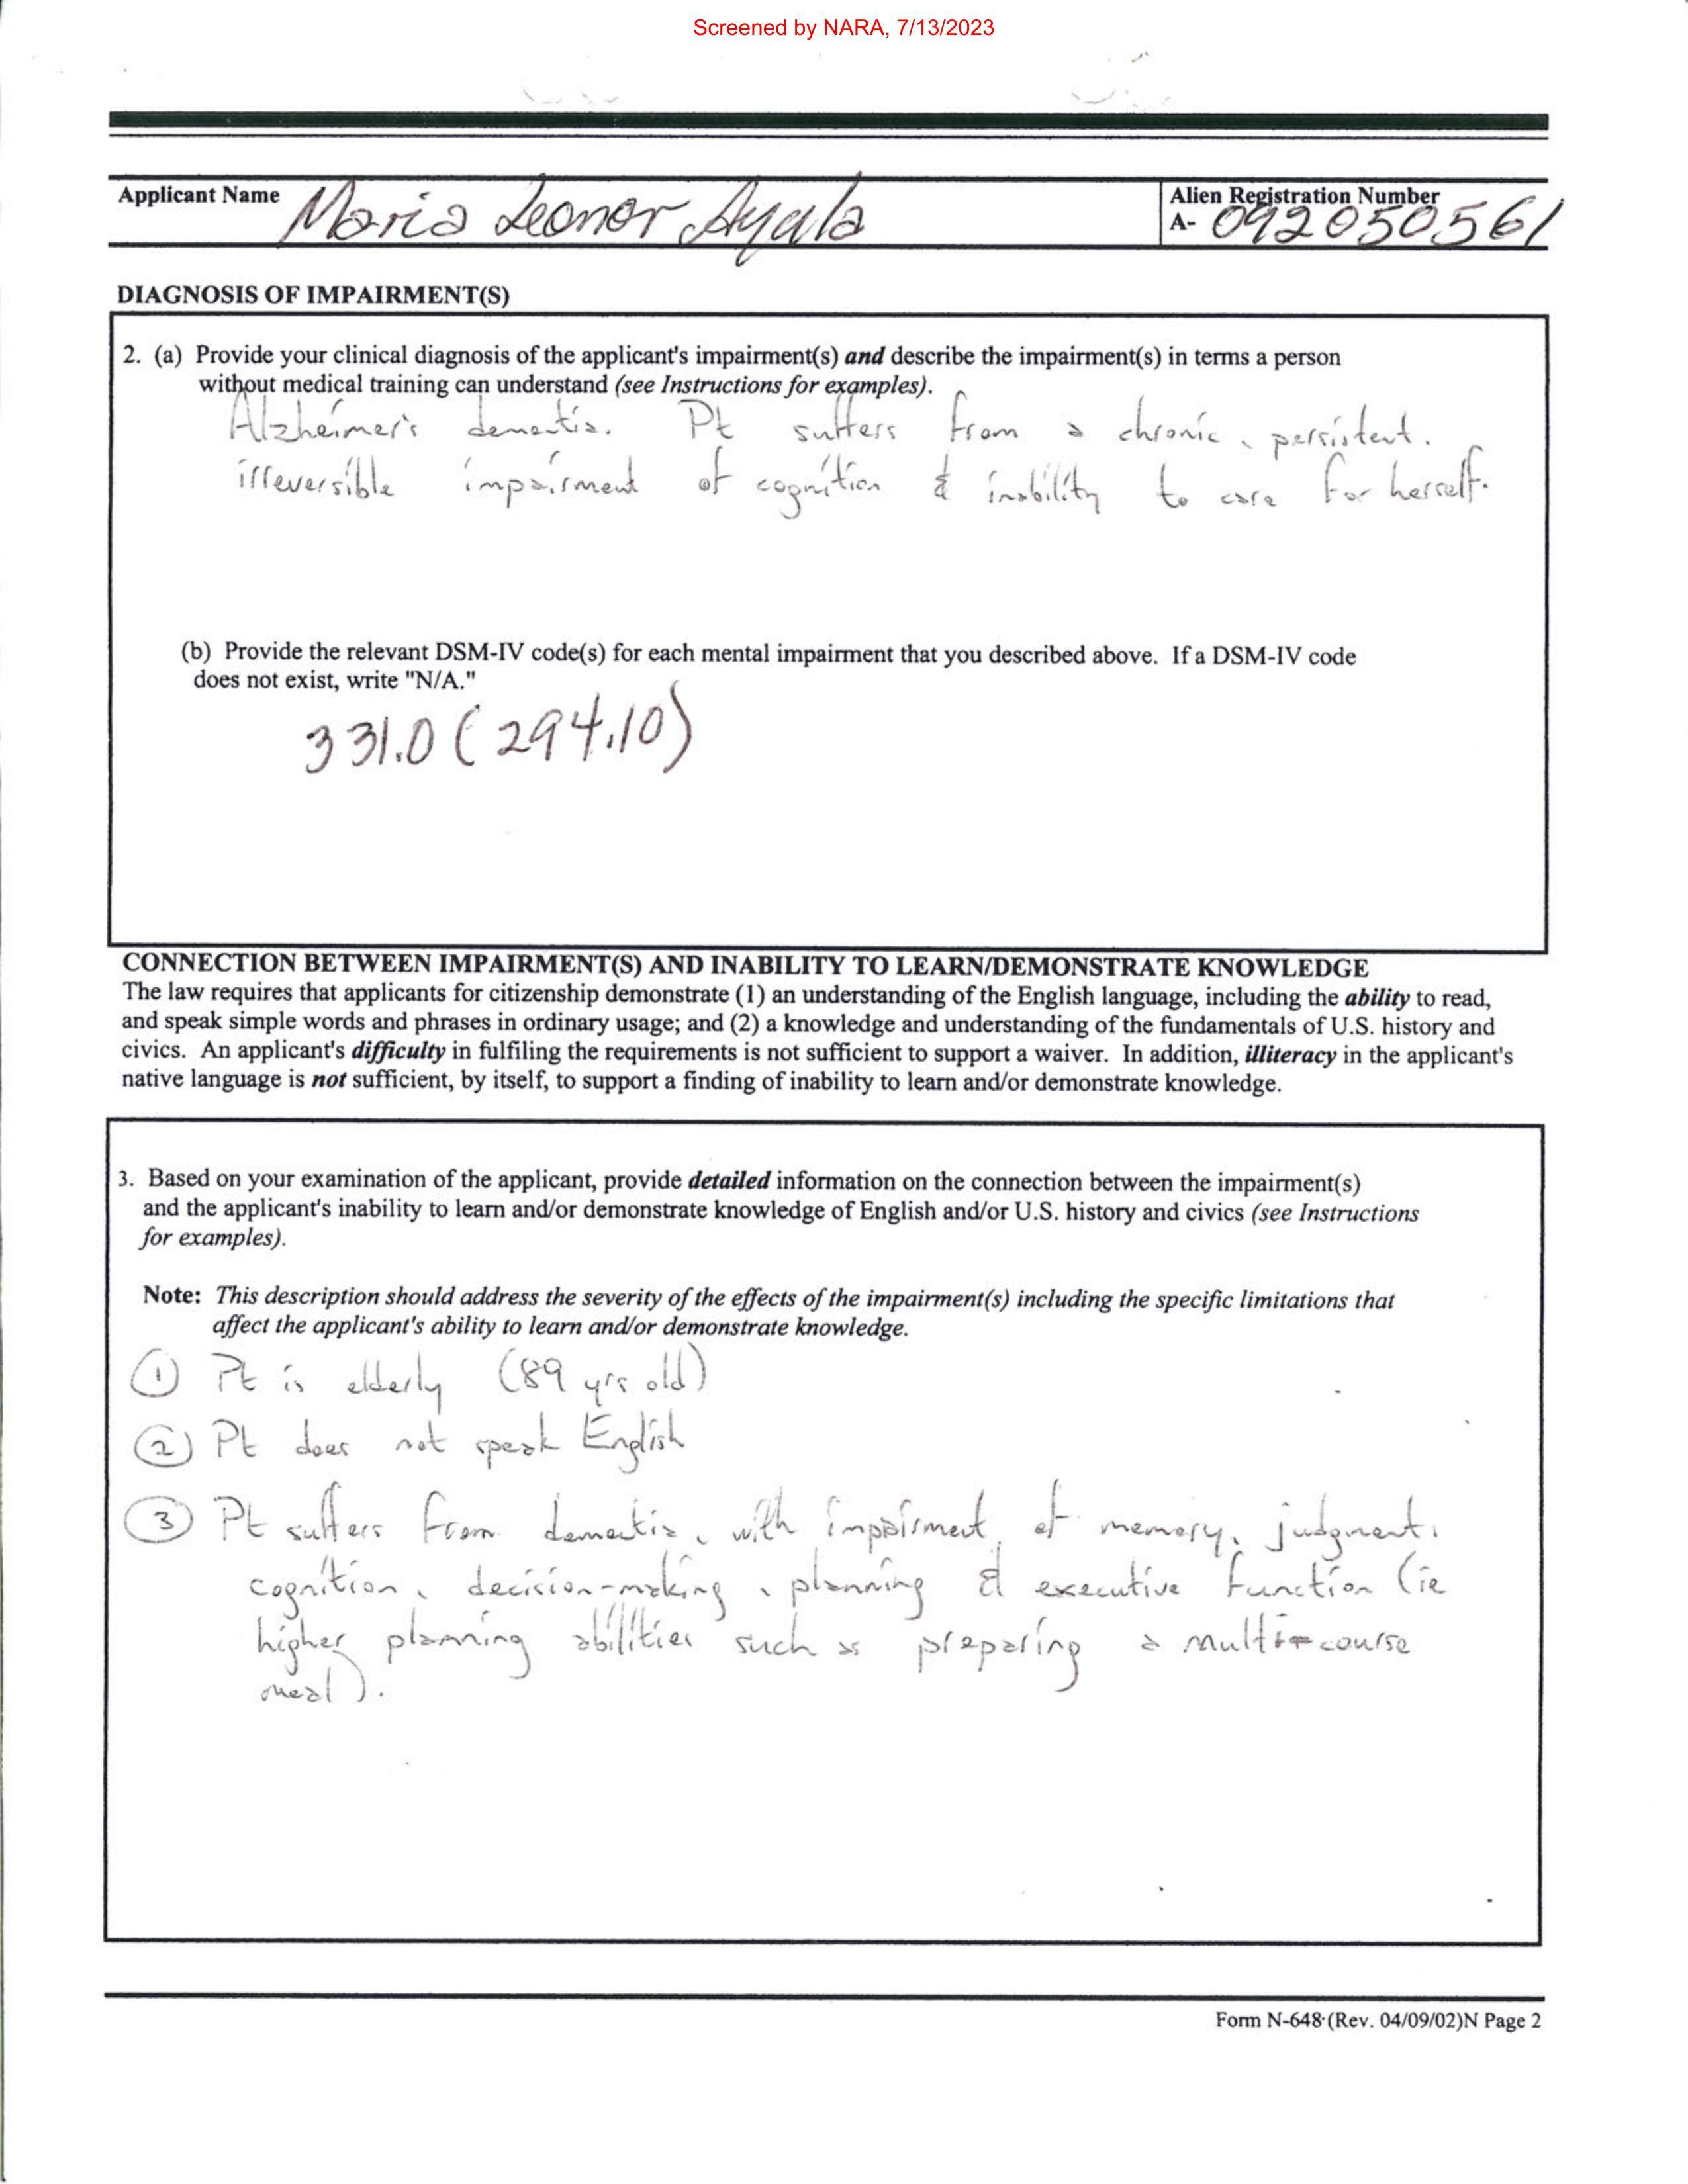 Screened by NARA, 7/13/2023
Applicant Name Maria Leonor Ayala
Alien Registration Number
A- 092050561
DIAGNOSIS OF IMPAIRMENT(S)
2. (a) Provide your clinical diagnosis of the applicant's impairment(s) and describe the impairment(s) in terms a person
without medical training can understand (see Instructions for examples).
Alzheimer's dementia. Pt suffers from a chronic, persistent,
irreversible impairment of cognition & inability to care for herself.
(b) Provide the relevant DSM-IV code(s) for each mental impairment that you described above. If a DSM-IV code
does not exist, write "N/A."
331.0 (294.10)
CONNECTION BETWEEN IMPAIRMENT(S) AND INABILITY TO LEARN/DEMONSTRATE KNOWLEDGE
The law requires that applicants for citizenship demonstrate (1) an understanding of the English language, including the ability to read,
and speak simple words and phrases in ordinary usage; and (2) a knowledge and understanding of the fundamentals of U.S. history and
civics. An applicant's difficulty in fulfiling the requirements is not sufficient to support a waiver. In addition, illiteracy in the applicant's
native language is not sufficient, by itself, to support a finding of inability to learn and/or demonstrate knowledge.
3. Based on your examination of the applicant, provide detailed information on the connection between the impairment(s)
and the applicant's inability to learn and/or demonstrate knowledge of English and/or U.S. history and civics (see Instructions
for examples).
Note: This description should address the severity of the effects of the impairment(s) including the specific limitations that
affect the applicant's ability to learn and/or demonstrate knowledge.
① Pt is elderly (89 yrs old)
② Pt does not speak English
③ Pt suffers from dementia, with impairment of memory, judgment,
cognition, decision-making, planning & executive function (ie
higher planning abilities such as preparing a multi-course
meal).
Form N-648 (Rev. 04/09/02)N Page 2